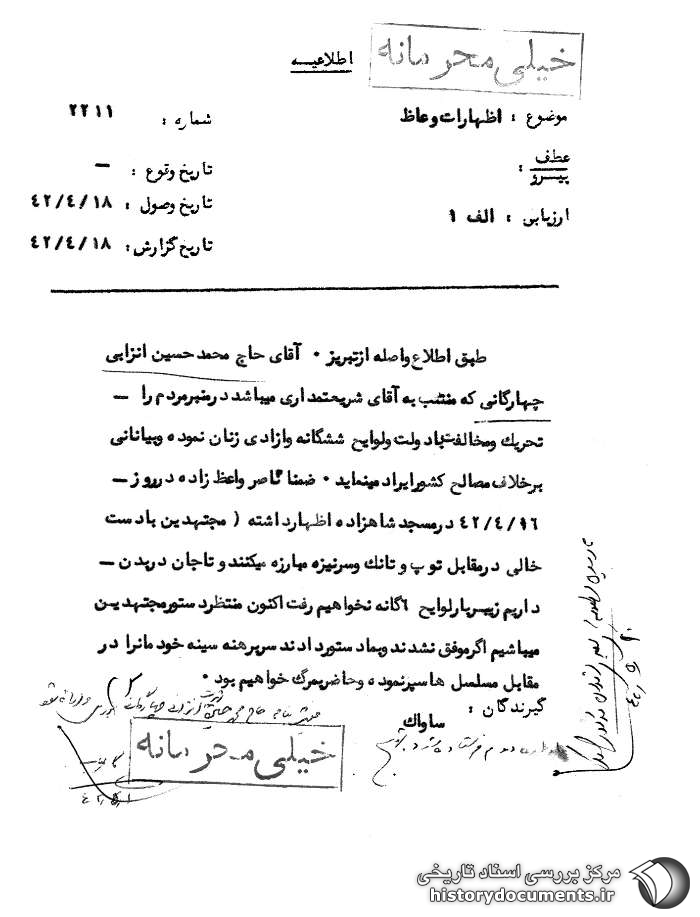 خیلی محرمانه
اطلاعیه
موضوع : اظهارات وعاظ
شماره : ۲۲۱۱
عطف
پیرو :
تاریخ وقوع : –
تاریخ وصول : ۴۲/۴/۱۸
ارزیابی : الف ۱
تاریخ گزارش : ۴۲/۴/۱۸
طبق اطلاع واصله از تبریز ۰ آقای حاج محمد حسین انزابی
چهارگانی که منتسب به آقای شریعتمداری میباشد در منبر مردم را –
تحریک و مخالفت با دولت ولوایح ششگانه وازادی زنان نموده وبیاناتی
برخلاف مصالح کشور ایراد مینماید ۰ ضمنا ناصر واعظ زاده در روز –
۴۲/۴/۱۶ در مسجد شاهزاده اظهار داشته ( مجتهدین با دست
خالی در مقابل توپ و تانک وسرنیزه مبارزه میکنند و تا جان در بدن –
داریم زیر بار لوایح ۶گانه نخواهیم رفت اکنون منتظر دستور مجتهدین
میباشیم اگر موفق نشدند وبما دستور دادند سر برهنه سینه خود مانرا در
مقابل مسلسل ها سپر نموده و حاضر بمرگ خواهیم بود ۰
گیرندگان :
ساواک
خیلی محرمانه
مرکز بررسی اسناد تاریخی
historydocuments.ir